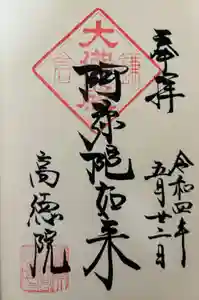 奉拝
令和四年
五月廿二日
大佛殿
鎌倉
阿弥陀如来
高徳院